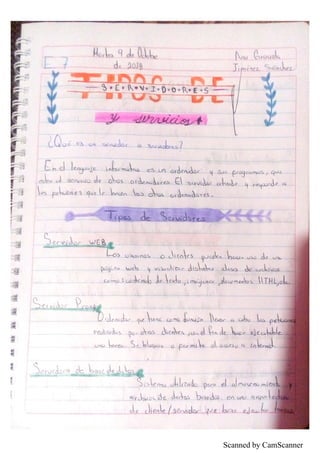 Martes 9 de Octubre
de 2018
Ana Graciela
Jiménez Sánchez
E.7
TIPOS DE
S•E•R•V•I•D•O•R•E•S
y servicios
¿Qué es un servidor o servidores?
En el lenguaje informatico es un ordenador y sus programas, que
esta al servicio de otros ordenadores. El servidor atiende y responde a
las peticiones que le hacen los otros ordenadores.
Tipos de Servidores
Servidor WEB
Los usuarios o clientes pueden hacer uso de una
pagina web y visualizar distintas clases de archivos
como contenido de texto, imágenes, documentos HTML, etc.
Servidor Proxy
Ordenador que tiene como función llevar a cabo las peticiones
realizadas por otros clientes, con el fin de hacer ejecutable
una tarea. Se bloquea o permite el acceso a internet.
Servidores de base de datos
Sistema utilizado para el almacenamiento y
de datos basados en una arquitectura
de cliente/servidor que hace ejecutar tareas
Scanned by CamScanner